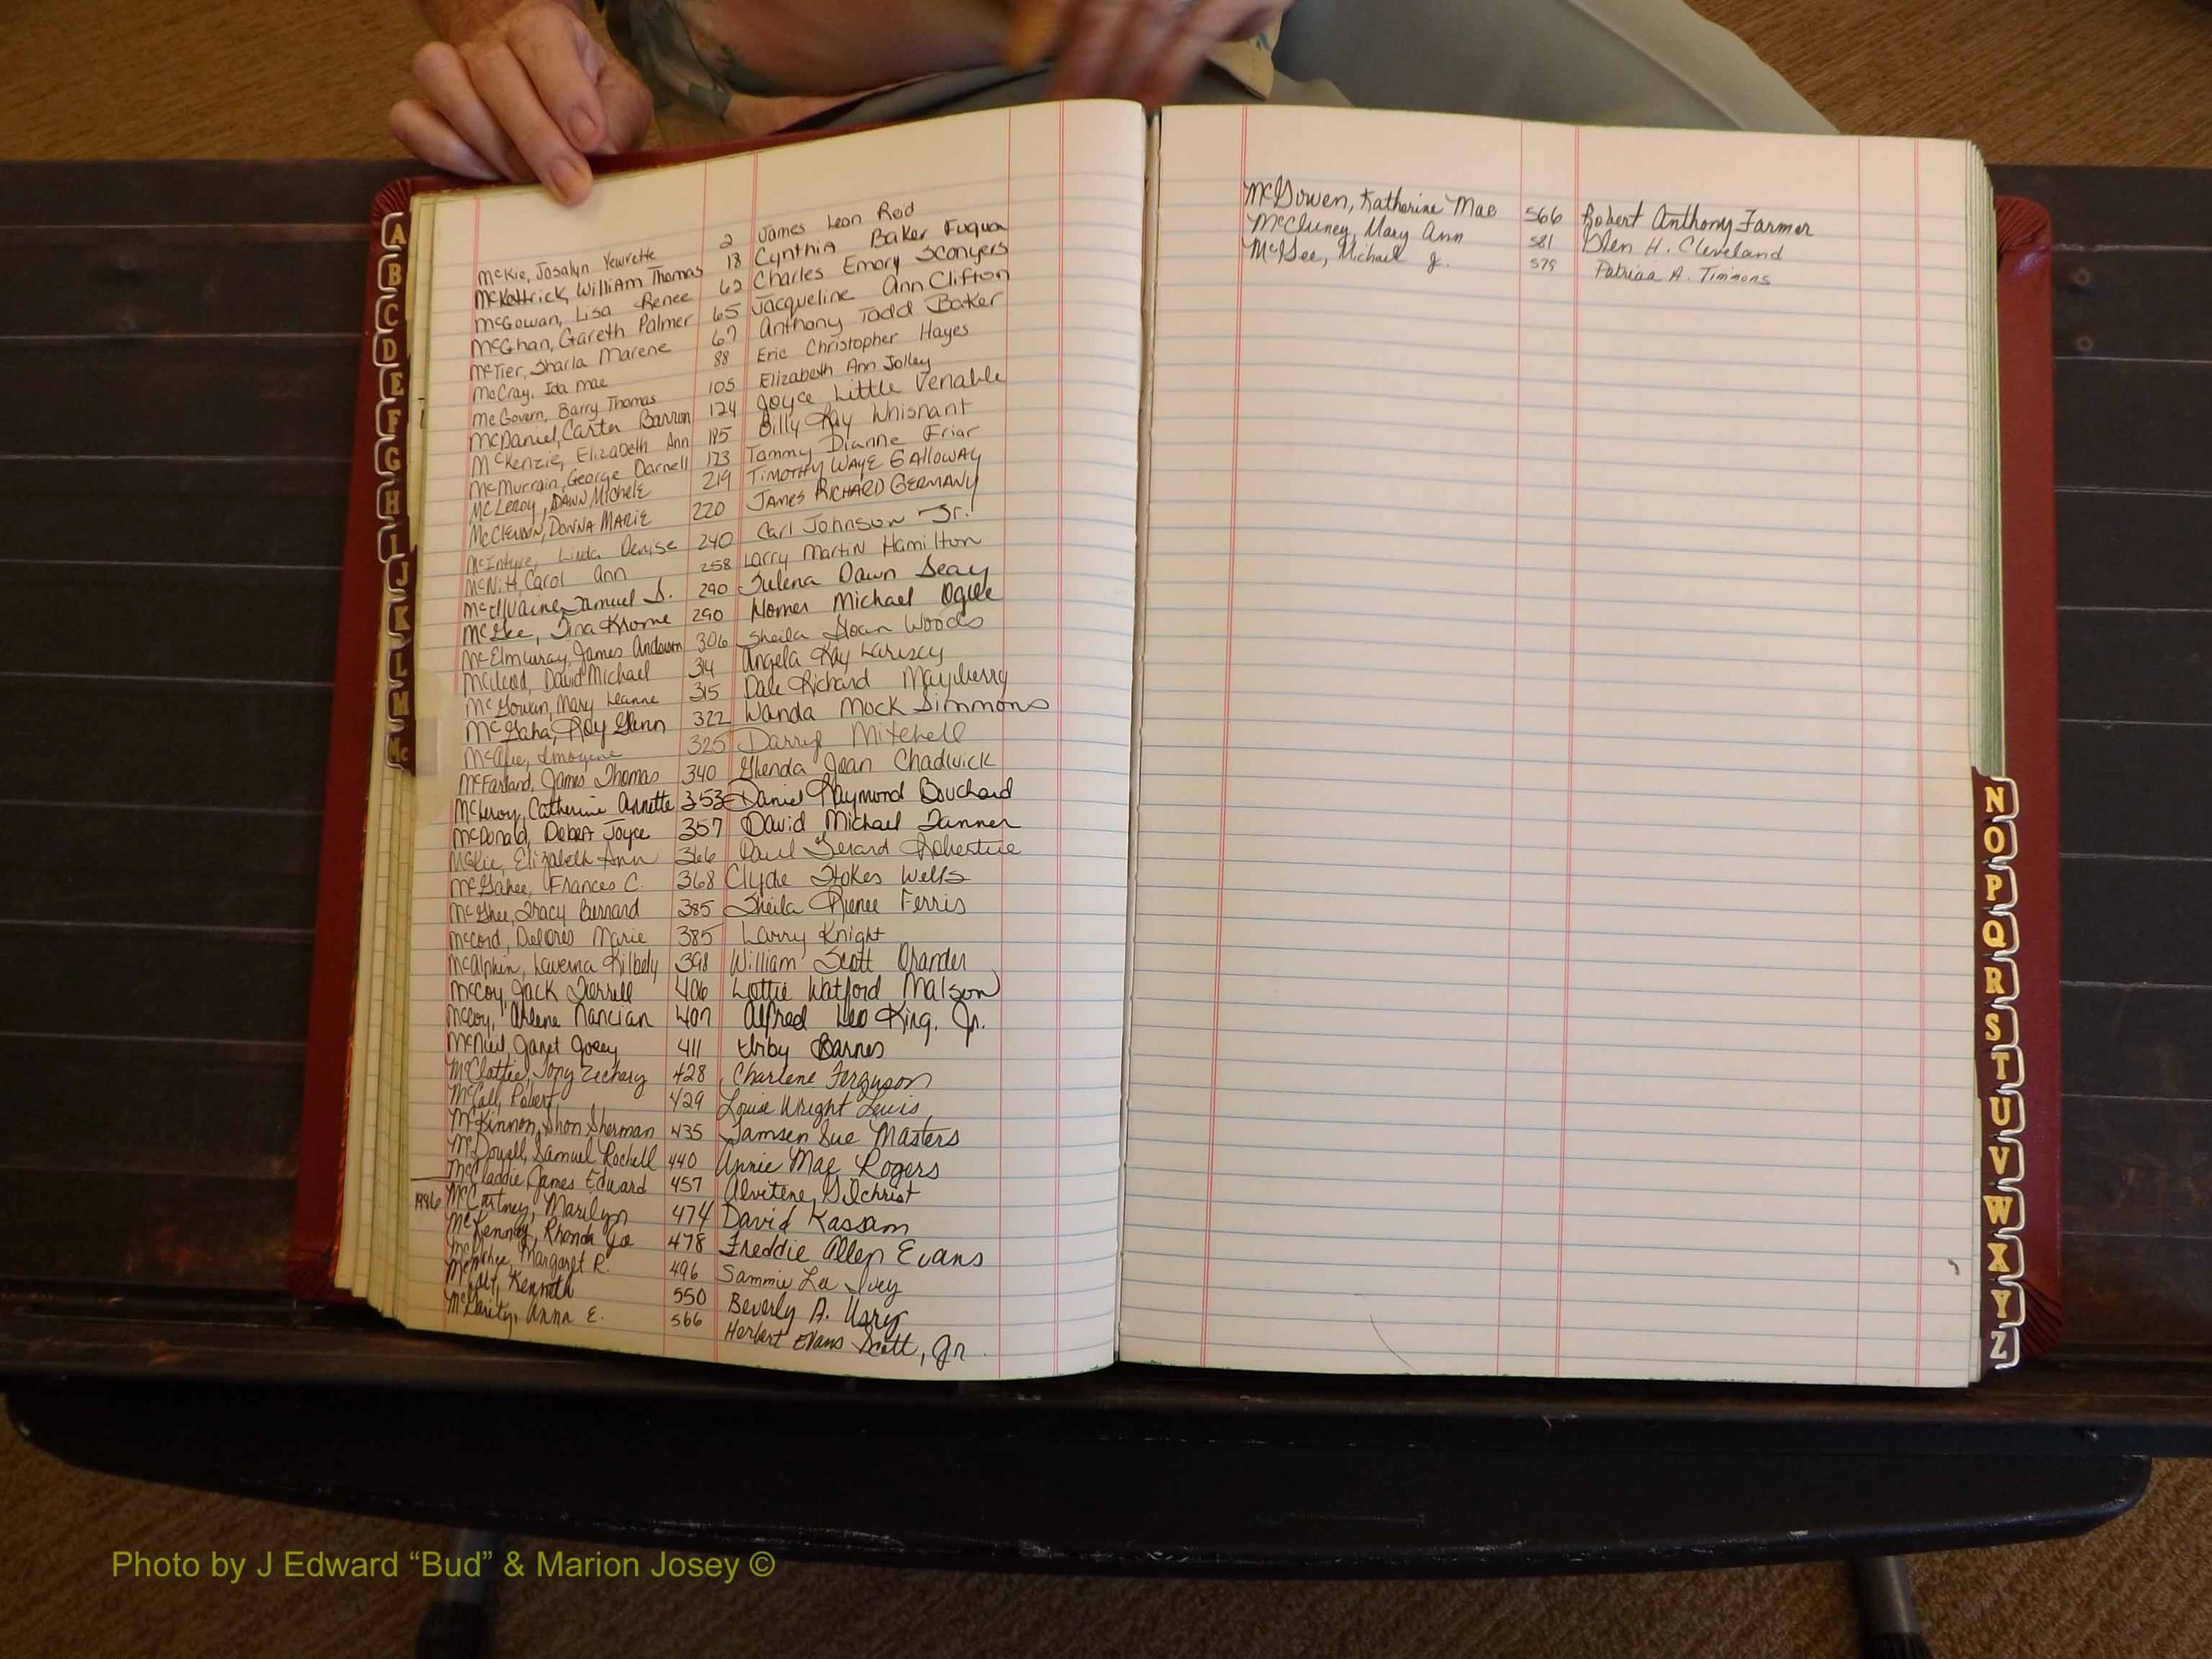 A
B
C
D
E
F
G
H
I
J
K
L
M
Mc
McKie, Josalyn Yevrette 2 James Leon Reid
McKettrick, William Thomas 18 Cynthia Baker Fuqua
McGowan, Lisa Renee 62 Charles Emory Sconyers
McGhan, Gareth Palmer 65 Jacqueline Ann Clifton
McTier, Sharla Marene 67 Anthony Todd Baker
McCray, Ida Mae 88 Eric Christopher Hayes
McGovern, Barry Thomas 105 Elizabeth Ann Jolley
McDaniel, Carter Barron 124 Joyce Little Venable
McKenzie, Elizabeth Ann 195 Billy Ray Whisnant
McMurrain, George Darnell 173 Tammy Dianne Friar
McLeroy, DAWN Michele 219 TIMOTHY WAYE GALLOWAY
McClendon, DONNA MARIE 220 JAMES RICHARD GERMANY
McIntyre, Linda Denise 240 Carl Johnson Jr.
McNitt, Carol Ann 258 Larry Martin Hamilton
McIlvaine, Samuel D. 290 Julena Dawn Seay
McGee, Tina Krome 290 Homer Michael Ogle
McElmurray, James Anderson 306 Sheila Sloan Woods
McLeod, David Michael 314 Angela Kay Lariscy
McGowan, Mary Leanne 315 Dale Richard Mayberry
McGaha, Roy Glenn 322 Wanda Mock Simmons
Imogene 325 Darryl Mitchell
McFarland, James Thomas 340 Glenda Jean Chadwick
McLeroy, Catherine Annette 353 Daniel Raymond Bouchard
McDonald, Debra Joyce 357 David Michael Tanner
McKie, Elizabeth Ann 366 Paul Gerard Robertue
McGahee, Frances C. 368 Clyde Stokes Wells
McGhee, Tracy Bernard 385 Sheila Renee Ferris
McCord, Delores Marie 385 Larry Knight
McAlphin, Laverna Kilbely 398 William Scott Orander
McCoy, Jack Terrell 406 Lottie Watford Malson
McCoy, Arlene Nancian 407 Alfred Leo King, Jr.
McNeil, Janet Josey 411 Urby Barnes
McClattie, Tony Zechary 428 Charlene Ferguson
McCall, Robert 429 Louise Wright Lewis
McKinnon, Shon Sherman 435 Tamsen Sue Masters
McDowell, Samuel Rochell 440 Annie Mae Rogers
McCladdie, James Edward 457 Alvitene Gilchrist
1986 McCartney, Marilyn 474 David Kassam
McKenney, Rhonda Jo 478 Freddie Allen Evans
Margaret R. 496 Sammie Lee Ivey
Kenneth 550 Beverly A. Usry
McDarity, Anna E. 566 Herbert Evans Scott, Jr.
McGowen, Katherine Mae 566 Robert Anthony Farmer
McCluney, Mary Ann 581 Glen H. Cleveland
McGee, Michael J. 579 Patricia A. Timmons
N
O
P
Q
R
S
T
U
V
W
X
Y
Z
Photo by J Edward “Bud” & Marion Josey ©